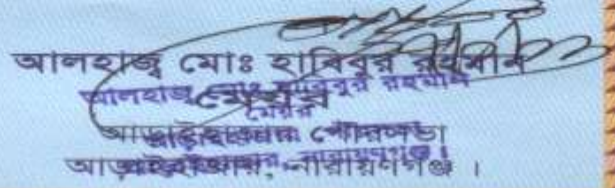 আলহাজ্ব মোঃ হাবিবুর রহমান
আলহাজ্ব মোঃ হাবিবুর রহমান
মেয়র
মেয়র
আড়াইহাজার পৌরসভা
আড়াইহাজার, নারায়ণগঞ্জ ।